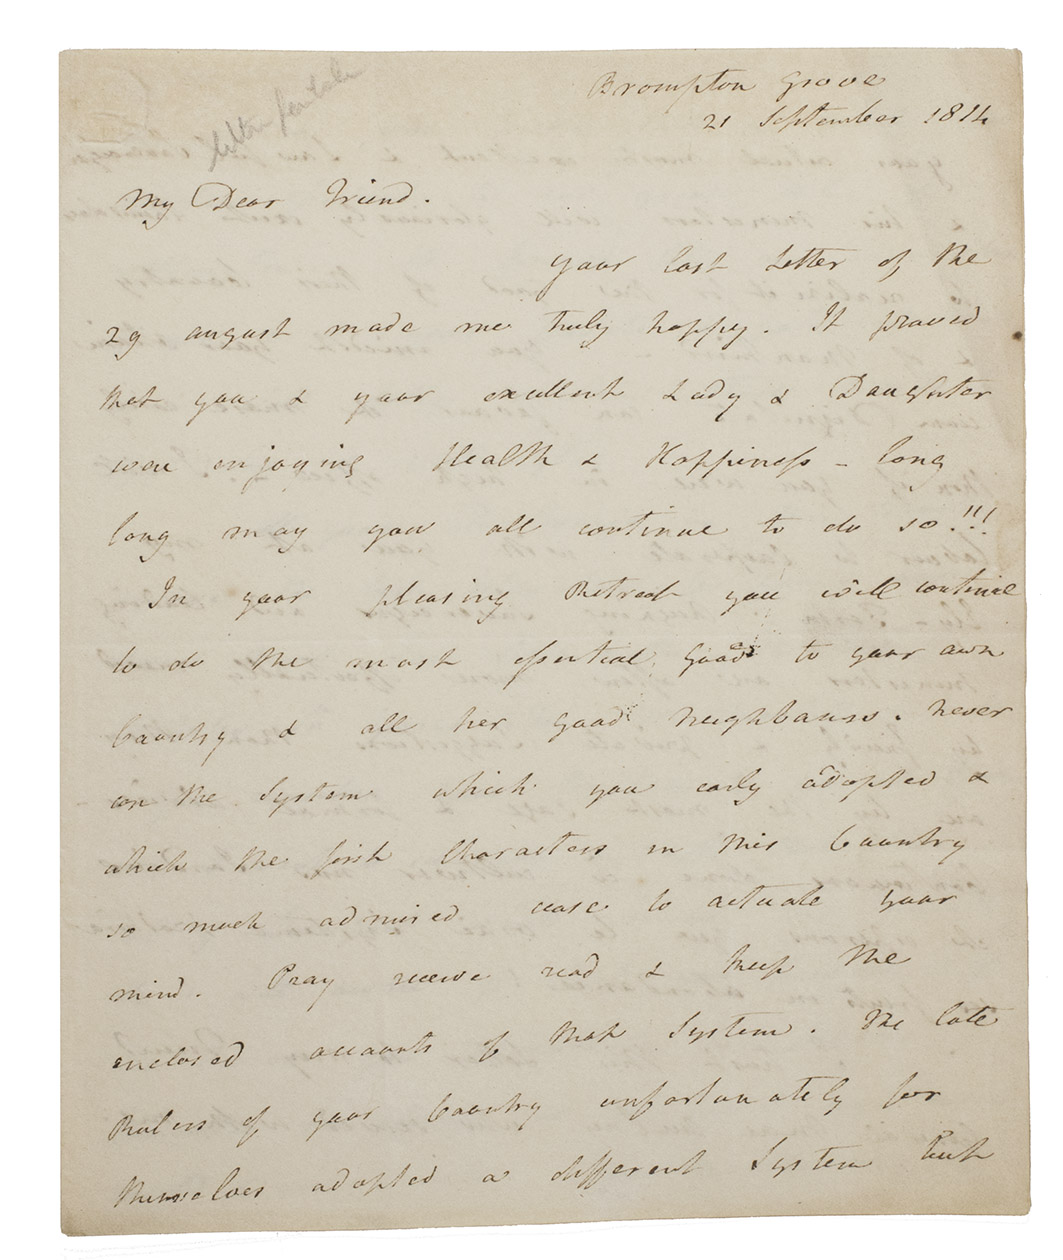 Brompton Grove
21 September 1814
My Dear Friend.
Your last Letter of the
29 august made me truly happy. It proved
that you & your excellent Lady & Daughter
were enjoying Health & Happiness – long
long may you all continue to do so!!!
In your pleasing Retreat you will continue
to do the most essential good to your own
Country & all her good neighbours. never
can the System which you early adopted &
which the first Characters in this Country
so much admired cease to actuate your
mind. Pray receive read & keep the
enclosed accounts of that System. The late
Rulers of your Country unfortunately for
themselves adopted a different System but